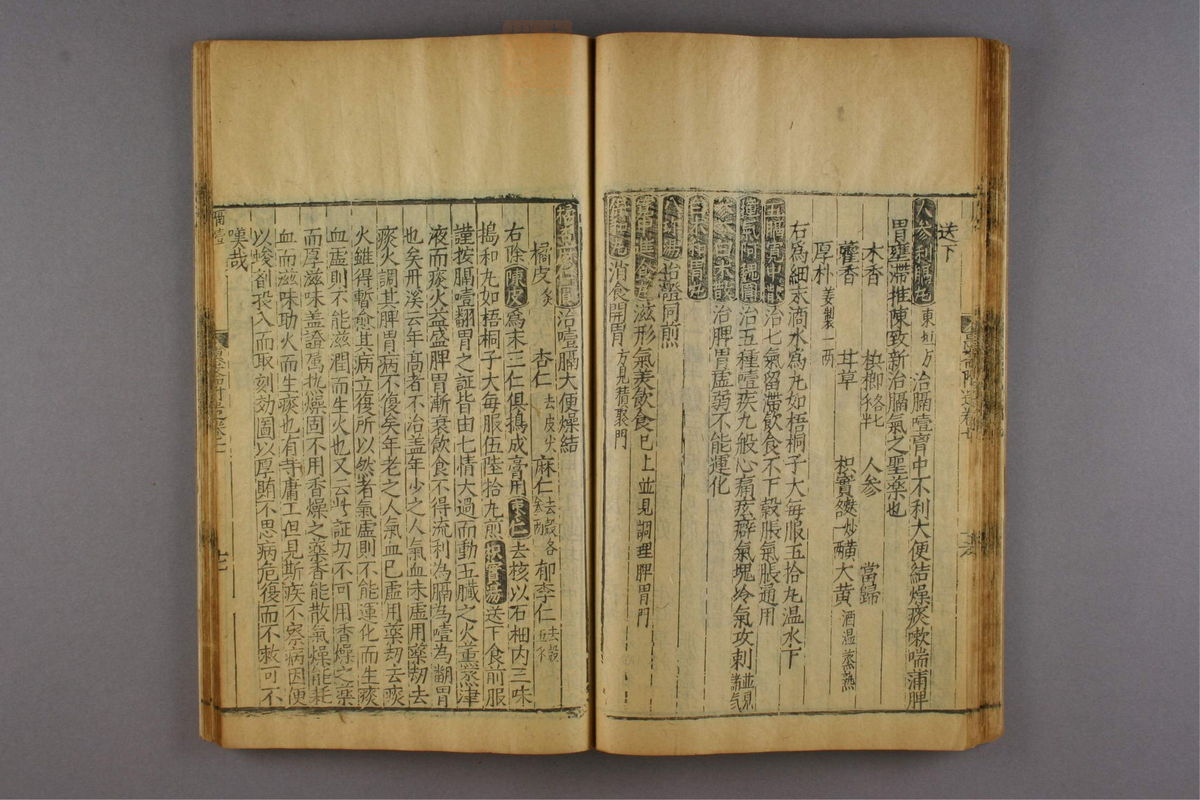 送下
人參利膈丸 東垣方 治膈噎胷中不利大便結燥痰嗽喘滿脾
胃壅滯推陳致新治膈氣之聖藥也
木香 檳榔各七半 人參 當歸
藿香 甘草 枳實麩炒各一兩 大黄酒温蒸熟
厚朴姜製一兩
右爲細末滴水爲丸如梧桐子大每服五拾丸温水下
五膈寛中散 治七氣留滯飲食不下穀脹氣脹通用
治五種噎疾九般心痛痃癖氣塊冷氣攻刺並見諸氣
參苓白朮散 治脾胃虛弱不能運化
白朮和胃丸
治證同前
進食丸 滋形氣美飲食已上並見調理脾胃門
保和丸 消食開胃方見積聚門
橘杏麻仁丸 治噎膈大便燥結
橘皮 杏仁去皮尖 麻仁去殼各三兩 郁李仁去殼五
右除陳皮爲末三仁俱搗成膏用棗仁去核以石柤内三味
搗和丸如梧桐子大每服伍陸拾丸煎枳實湯送下食前服
謹按膈噎翻胃之証皆由七情大過而動五臟之火熏蒸津
液而痰火益盛脾胃漸衰飲食不得流利為膈為噎為翻胃
也矣丹溪云年高者不治盖年少之人氣血未虛用藥刼去
痰火調其脾胃病不復矣年老之人氣血已虛用藥刼去痰
火雖得暫愈其病立復所以然者氣虛則不能運化而生痰
血虛則不能滋潤而生火也又云此証切不可用香燥之藥
而厚滋味盖證屬热燥固不用香燥之藥香能散氣燥能耗
血而滋味助火而生痰也有等庸工但見斯疾不察病因便
以峻劑投入而取刻効圖以厚賄不思病危復而不救可不
嘆哉
膈噎